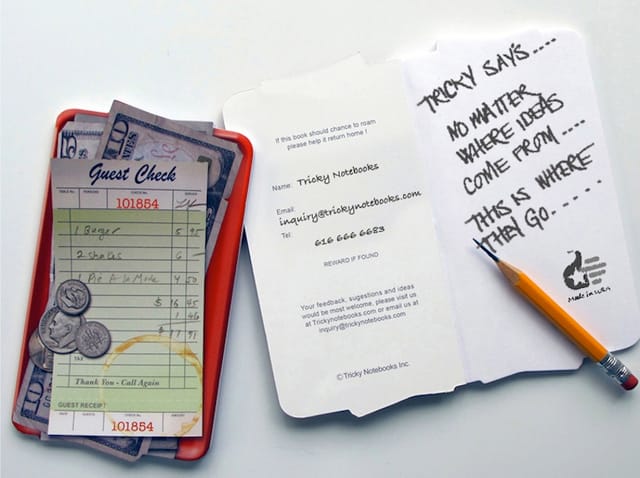 10
5
Guest Check
TABLE No. PERSONS CHECK No. SERVER
101854
1 Burger 5 95
2 shakes 6 —
1 Pie A la Mode 4 50
$ 16 45
1 46
$ 17 91
TAX
Thank You - Call Again
GUEST RECEIPT
DATE CHECK No. AMOUNT
101854
If this book should chance to roam
please help it return home !
Name: Tricky Notebooks
Email:
inquiry@trickynotebooks.com
Tel: 616 666 6683
REWARD IF FOUND
Your feedback, suggestions and ideas
would be most welcome, please visit us
at Trickynotebooks.com or email us at
inquiry@trickynotebooks.com
©Tricky Notebooks Inc.
TRICKY SAY'S....
NO MATTER
WHERE IDEAS
COME FROM ....
THIS IS WHERE
THEY GO.....
Made in USA